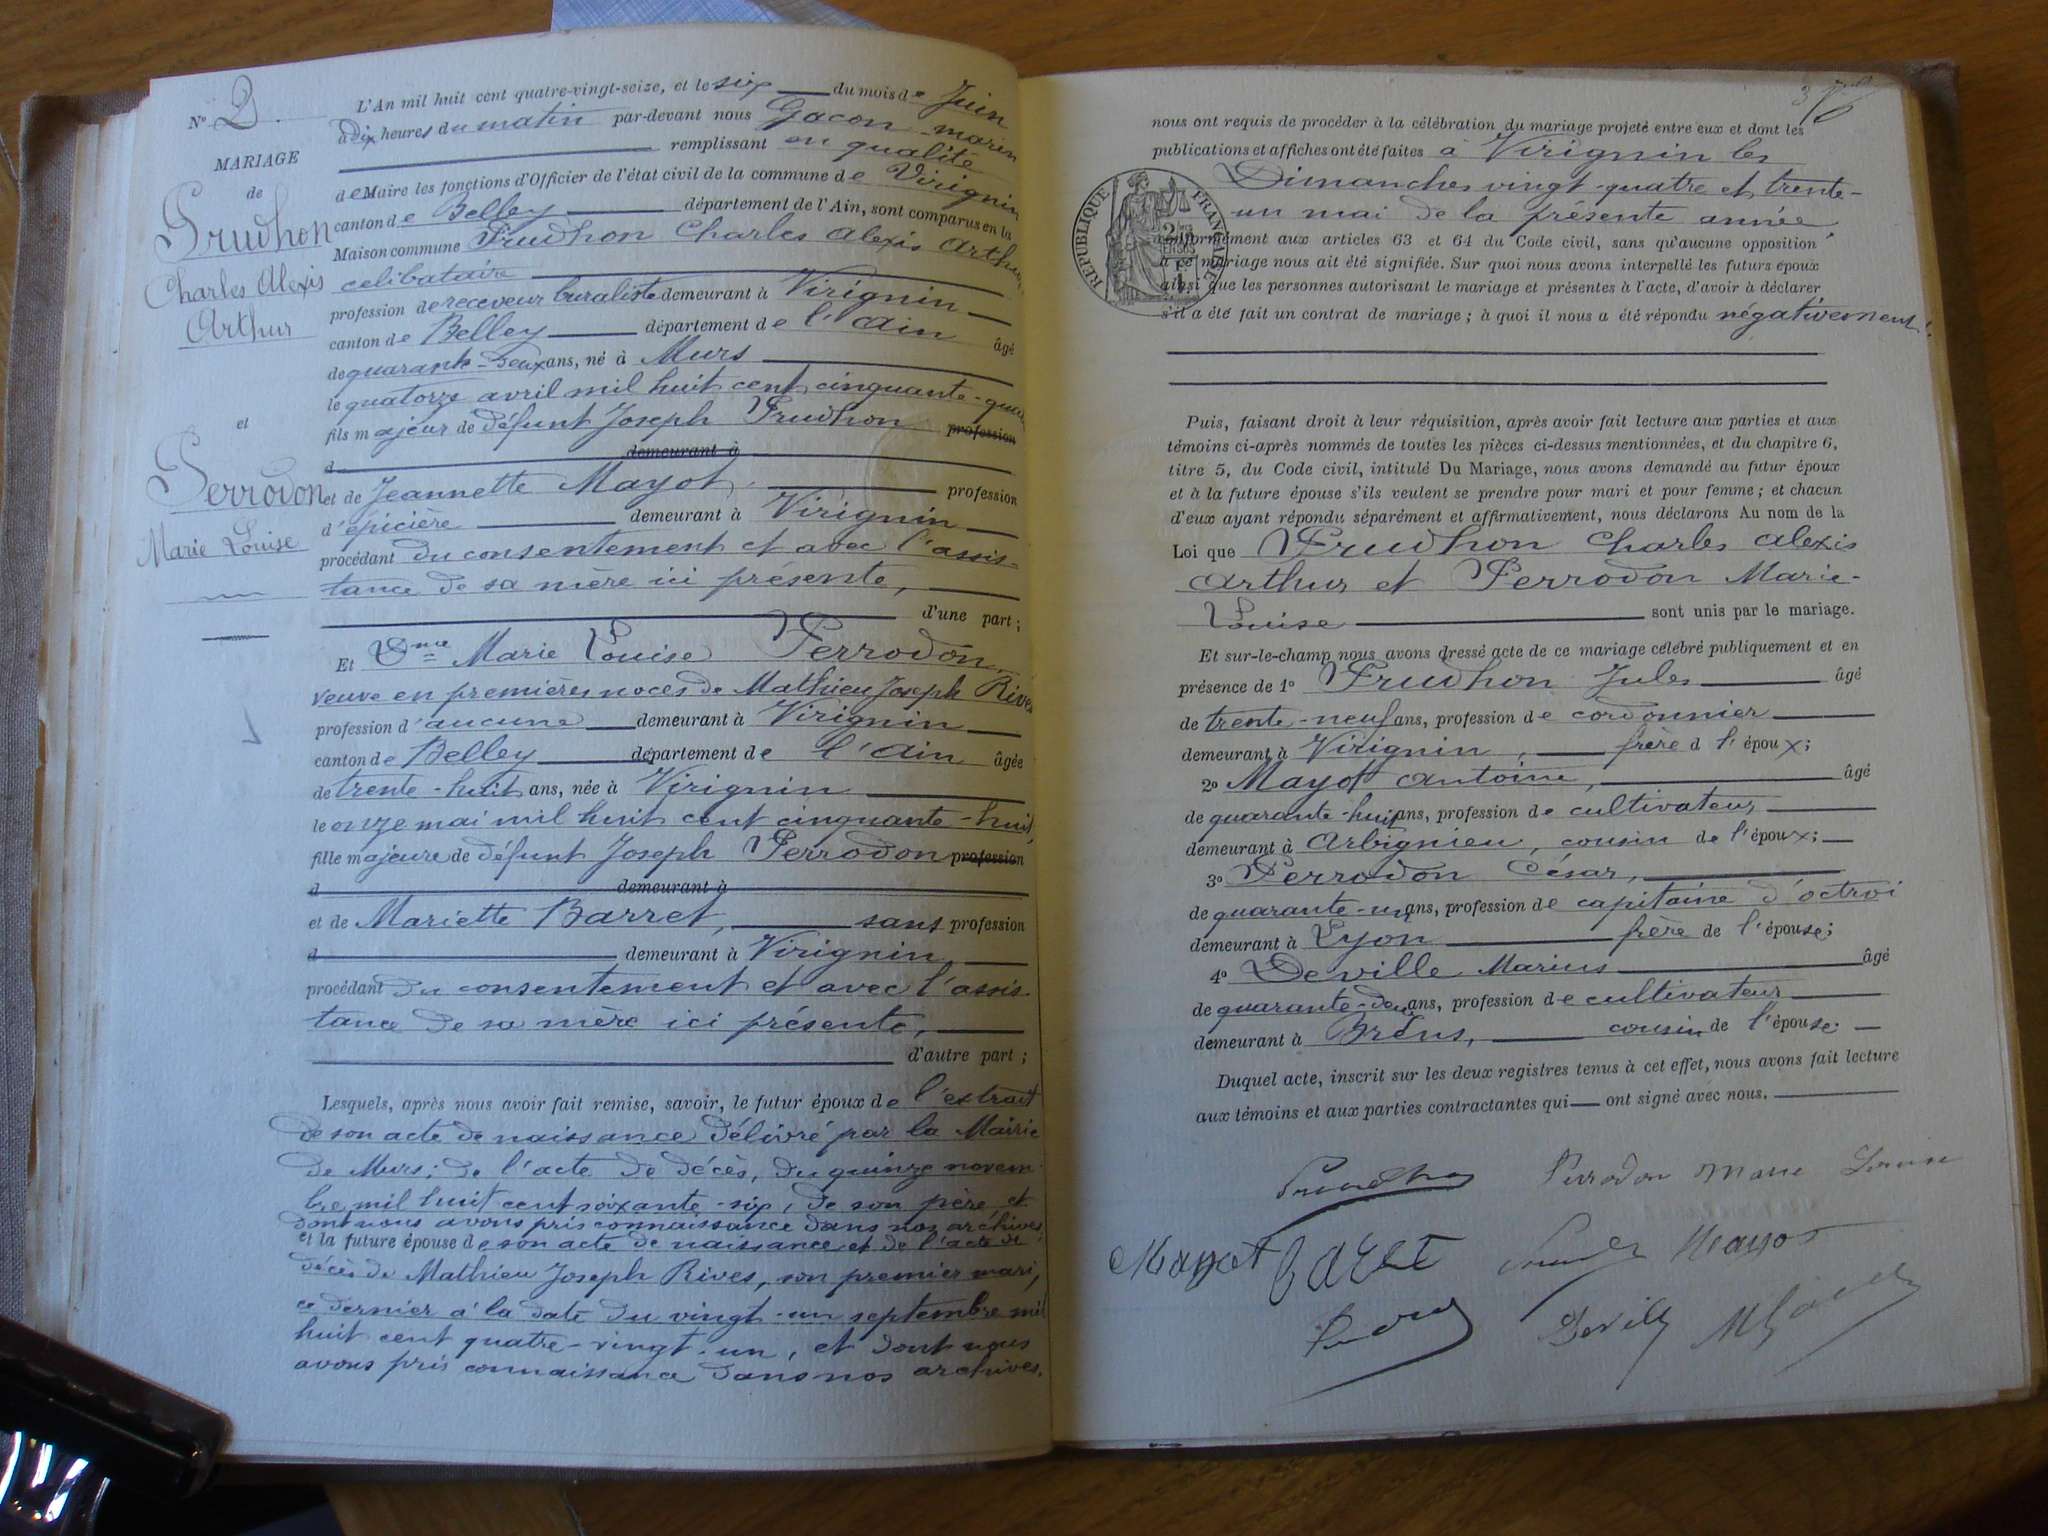 N° 2.
MARIAGE
de
Prudhon
Charles Alexis
Arthur
et
Perrodon
Marie Louise
L'An mil huit cent quatre-vingt-seize, et le six du mois de Juin
à dix heures du matin par-devant nous Gacon marin
remplissant en qualité
de Maire les fonctions d'Officier de l'état civil de la commune de Virignin
canton de Belley département de l'Ain, sont comparus en la
Maison commune Prudhon Charles Alexis Arthur
célibataire
profession de receveur buraliste demeurant à Virignin
canton de Belley département de l'Ain âgé
de quarante-deux ans, né à Murs
le quatorze avril mil huit cent cinquante-quatre
fils majeur de défunt Joseph Prudhon profession
d demeurant à
et de Jeannette Mayot, profession
d'épicière demeurant à Virignin
procédant du consentement et avec l'assis-
tance de sa mère ici présente,
d'une part;
Et Dme Marie Louise Perrodon,
veuve en premières noces de Mathieu Joseph Rives
profession d'aucune demeurant à Virignin
canton de Belley département de l'Ain âgée
de trente-huit ans, née à Virignin
le onze mai mil huit cent cinquante-huit,
fille majeure de défunt Joseph Perrodon profession
d demeurant à
et de Mariette Barret, sans profession
d demeurant à Virignin,
procédant du consentement et avec l'assis-
tance de sa mère ici présente,
d'autre part;
Lesquels, après nous avoir fait remise, savoir, le futur époux de l'extrait
de son acte de naissance délivré par la Mairie
de Murs; de l'acte de décès, du quinze novem-
bre mil huit cent soixante-six, de son père et
dont nous avons pris connaissance dans nos archives
et la future épouse de son acte de naissance et de l'acte de
décès de Mathieu Joseph Rives, son premier mari,
ce dernier à la date du vingt-un septembre mil
huit cent quatre-vingt-un, et dont nous
avons pris connaissance dans nos archives.
3
nous ont requis de procéder à la célébration du mariage projeté entre eux et dont les
publications et affiches ont été faites à Virignin les
Dimanches vingt-quatre et trente-
un mai de la présente année,
RÉPUBLIQUE FRANÇAISE
conformément aux articles 63 et 64 du Code civil, sans qu'aucune opposition
à ce mariage nous ait été signifiée. Sur quoi nous avons interpellé les futurs époux
ainsi que les personnes autorisant le mariage et présentes à l'acte, d'avoir à déclarer
s'il a été fait un contrat de mariage; à quoi il nous a été répondu négativement.
Puis, faisant droit à leur réquisition, après avoir fait lecture aux parties et aux
témoins ci-après nommés de toutes les pièces ci-dessus mentionnées, et du chapitre 6,
titre 5, du Code civil, intitulé Du Mariage, nous avons demandé au futur époux
et à la future épouse s'ils veulent se prendre pour mari et pour femme; et chacun
d'eux ayant répondu séparément et affirmativement, nous déclarons Au nom de la
Loi que Prudhon Charles Alexis
Arthur et Perrodon Marie-
Louise sont unis par le mariage.
Et sur-le-champ nous avons dressé acte de ce mariage célébré publiquement et en
présence de 1° Prudhon Jules âgé
de trente-neuf ans, profession de cordonnier
demeurant à Virignin, frère d l'époux;
2° Mayot Antoine, âgé
de quarante-huit ans, profession de cultivateur,
demeurant à Arbignieu, cousin de l'époux;
3° Perrodon César,
de quarante-un ans, profession de capitaine d'octroi
demeurant à Lyon frère de l'épouse;
4° Deville Marius âgé
de quarante-deux ans, profession de cultivateur
demeurant à Brens, cousin de l'épouse.
Duquel acte, inscrit sur les deux registres tenus à cet effet, nous avons fait lecture
aux témoins et aux parties contractantes qui ont signé avec nous.
Prudhon Perrodon Marie Louise
Mayot Baret Mayot
Deville